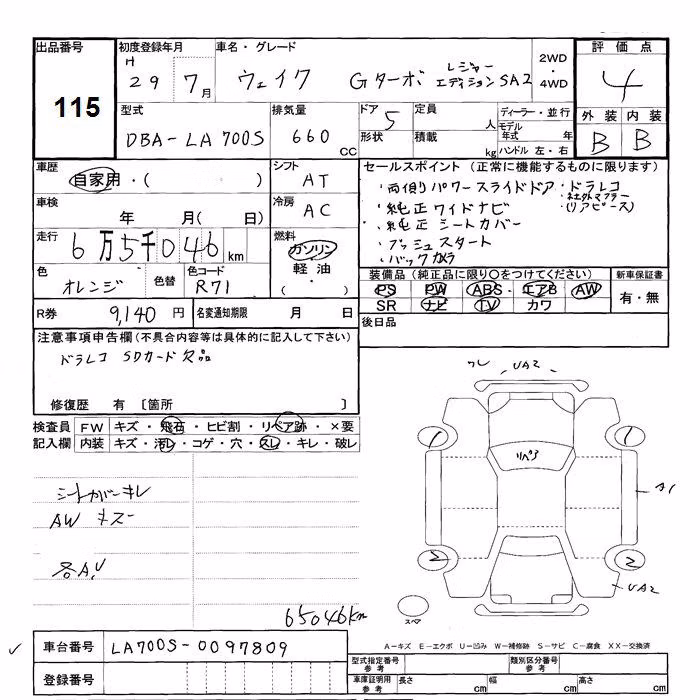 出品番号 初度登録年月 車名・グレード 2WD・4WD 評価点
115 H 29 7月 ウェイク Gターボ レジャーエディションSA2 4
型式 排気量 ドア 定員 ディーラー・並行 外装 内装
DBA-LA700S 660 CC 5 人 モデル年式 年 B B
形状 積載 kg ハンドル 左・右
車歴 自家用・( ) シフト AT
車検 年 月( 日) 冷房 AC
走行 6万5千046km 燃料 ガソリン 軽油 ( ・ )
色 オレンジ 色替 色コード R71
R券 9,140円 名変通知期限 月 日
セールスポイント (正常に機能するものに限ります)
・両側パワースライドドア ・ドラレコ
・社外マフラー
・純正ワイドナビ (リアピース)
・純正シートカバー
・プッシュスタート
・バックカメラ
装備品(純正品に限り○をつけてください) 新車保証書
PS PW ABS・エアB AW 有・無
SR ナビ TV カワ
後日品
注意事項申告欄(不具合内容等は具体的に記入して下さい)
ドラレコ SDカード欠品
修復歴 有 〔箇所 〕
検査員 FW キズ・飛石・ヒビ割・リペア跡・×要
記入欄 内装 キズ・汚レ・コゲ・穴・スレ・キレ・破レ
シートカバーキレ
AW キズー
各A,U
65046km
UA2
リペア
1 1
A1
2 2
UA2
スペア
車台番号 LA700S-0097809
登録番号
A-キズ E-エクボ U-凹み W-補修跡 S-サビ C-腐食 XX-交換済
型式指定番号 参考 類別区分番号 参考
車庫証明用 参考 長さ cm 幅 cm 高さ cm